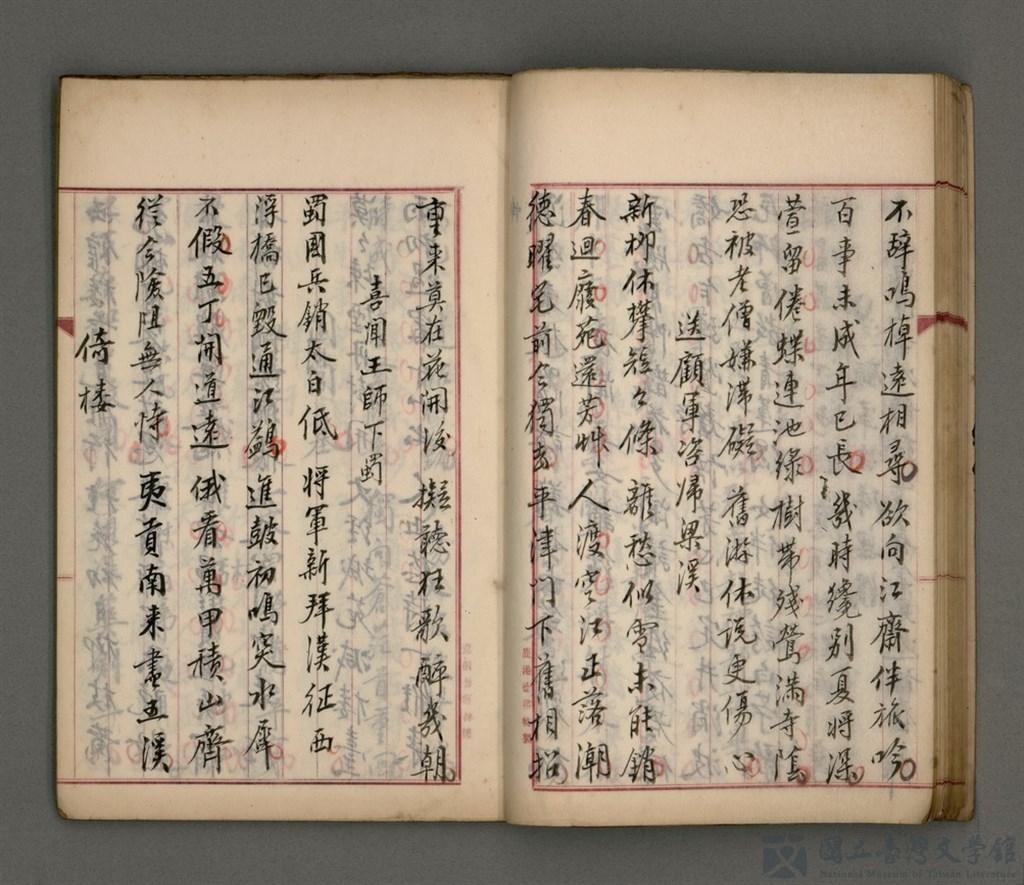 不辞鳴棹遠相尋欲向江齋伴旅吟
百事未成年已長幾時纔別夏將深
萱留倦蝶連池綠樹帶殘鶯滿寺陰
恐被老僧嫌滯礙舊游休説更傷心
送顧軍咨帰梁溪
新柳休攀短々條離愁似雪未能銷
春迴廢苑還芳艸人渡空江正落潮
德曜皃前今獨去平津門下舊相招
重来莫在花開後擬聽狂歌醉幾朝
喜聞王師下蜀
蜀国兵銷太白低将軍新拜漢征西
浮橋已毀通江鷁進鼓初鳴突水犀
不假五丁開道遠俄看萬甲積山齊
從今險阻無人恃夷貢南来盡五溪
倚楼
國立臺灣文學館
National Museum of Taiwan Literature